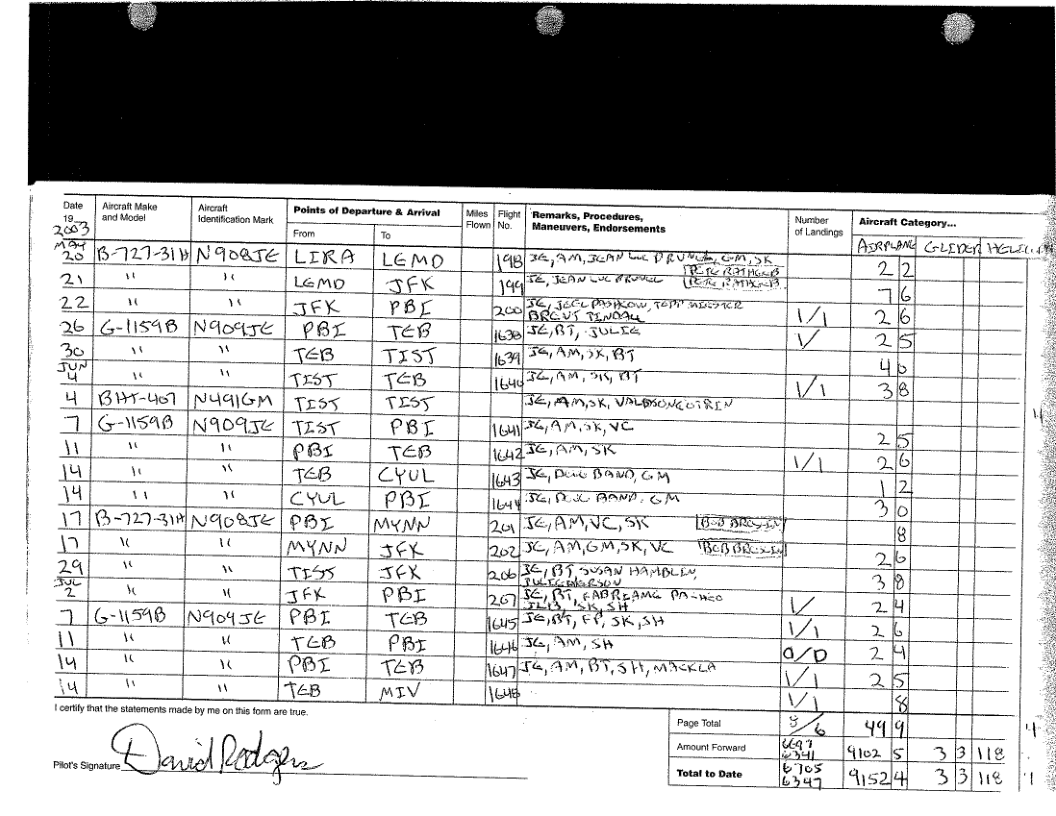 Date Aircraft Make and Model Aircraft Identification Mark Points of Departure & Arrival Miles Flown Flight No. Remarks, Procedures, Maneuvers, Endorsements Number of Landings Aircraft Category...
19 2003 From To AIRPLANE GLIDER
MAY 20 B-727-31H N908JE LIRA LEMD 198 JE, AM, JEAN LUC GM, SK 2 2
21 " " LEMD JFK 199 JE, JEAN LUC 7 6
22 " " JFK PBI 200 JE, 1/1 2 6
BRENT TINDALL
26 G-1159B N909JE PBI TEB 1638 JE, BT, JULIE 1/ 2 5
30 " " TEB TIST 1639 JE, AM, SK, BT 4 0
JUN 4 " " TIST TEB 1640 JE, AM, SK, BT 1/1 3 8
4 BHT-407 N491GM TIST TIST JE, AM, SK,
7 G-1159B N909JE TIST PBI 1641 JE, AM, SK, VC 2 5
11 " " PBI TEB 1642 JE, AM, SK 1/1 2 6
14 " " TEB CYUL 1643 JE, BAND, GM 1 2
14 " " CYUL PBI 1644 JE, BAND, GM 3 0
17 B-727-31H N908JE PBI MYNN 201 JE, AM, VC, SK 8
17 " " MYNN JFK 202 JE, AM, GM, SK, VC 2 6
29 " " TIST JFK 206 JE, BT SUSAN HAMBLIN, 3 8
JUL 2 " " JFK PBI 207 JE, BT, 1/ 2 4
SK, SH
7 G-1159B N909JE PBI TEB 1645 JE, BT, FP, SK, SH 1/1 2 6
11 " " TEB PBI 1646 JE, AM, SH 0/0 2 4
14 " " PBI TEB 1647 JE, AM, BT, SH, 1/1 2 5
14 " " TEB MIV 1648 1/1 8
I certify that the statements made by me on this form are true.
Page Total 49 9
Amount Forward 6341 9102 5 3 3 118
Pilot's Signature David Rodgers
Total to Date 6705 6347 9152 4 3 3 118